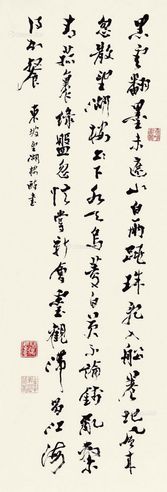 黑雲翻墨未遮山白雨跳珠亂入船卷地風來
忽散望湖樓下水如天烏菱白芡不論錢亂繫
青菰裹綠盤忽憶嘗新會靈觀滯留江海
得加餐
東坡望湖樓醉書